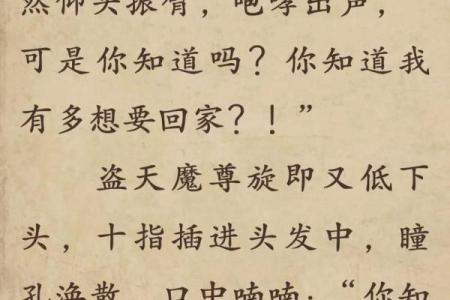 然仰头振臂，咆哮出声，
可是你知道吗？你知道我
有多想要回家？！”
盗天魔尊旋即又低下
头，十指插进头发中，瞳
孔涣散，口中喃喃：“你知